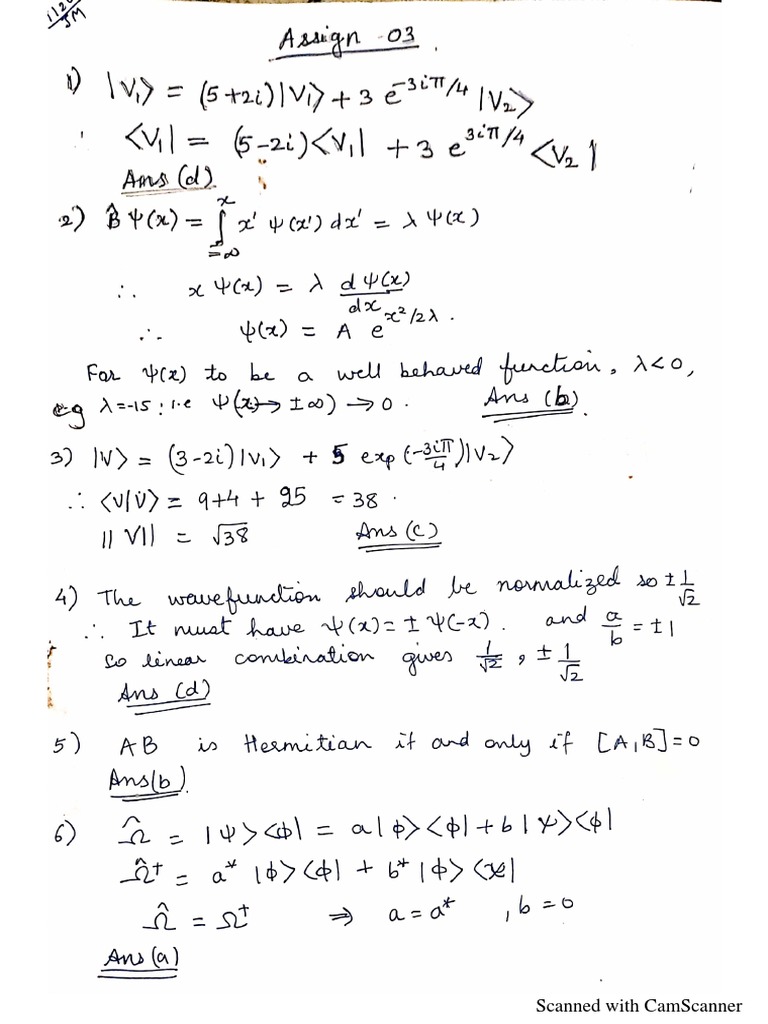 Assign - 03
1) |V₁⟩ = (5+2i)|V₁⟩ + 3 e^{-3iπ/4} |V₂⟩
∴ ⟨V₁| = (5-2i)⟨V₁| + 3 e^{3iπ/4} ⟨V₂|
Ans (d)
2) B̂ Ψ(x) = ∫_{-∞}^{x} x' Ψ(x') dx' = λ Ψ(x)
∴ x Ψ(x) = λ dΨ(x)/dx
∴ Ψ(x) = A e^{x²/2λ}.
For Ψ(x) to be a well behaved function, λ<0,
eg λ=-15; i.e Ψ(x→±∞) → 0. Ans (b).
3) |V⟩ = (3-2i)|V₁⟩ + 5 exp(-3iπ/4)|V₂⟩
∴ ⟨V|V⟩ = 9+4 + 25 = 38.
||V|| = √38 Ans (c)
4) The wavefunction should be normalized so ±1/√2
∴ It must have Ψ(x)=±Ψ(-x). and a/b = ±1
So linear combination gives 1/√2, ±1/√2
Ans (d)
5) AB is Hermitian if and only if [A,B]=0
Ans(b)
6) Ω̂ = |Ψ⟩⟨Φ| = a|Φ⟩⟨Φ| + b|χ⟩⟨Φ|
Ω̂† = a* |Φ⟩⟨Φ| + b* |Φ⟩⟨χ|
Ω̂ = Ω† ⇒ a = a*, b = 0
Ans (a)
Scanned with CamScanner